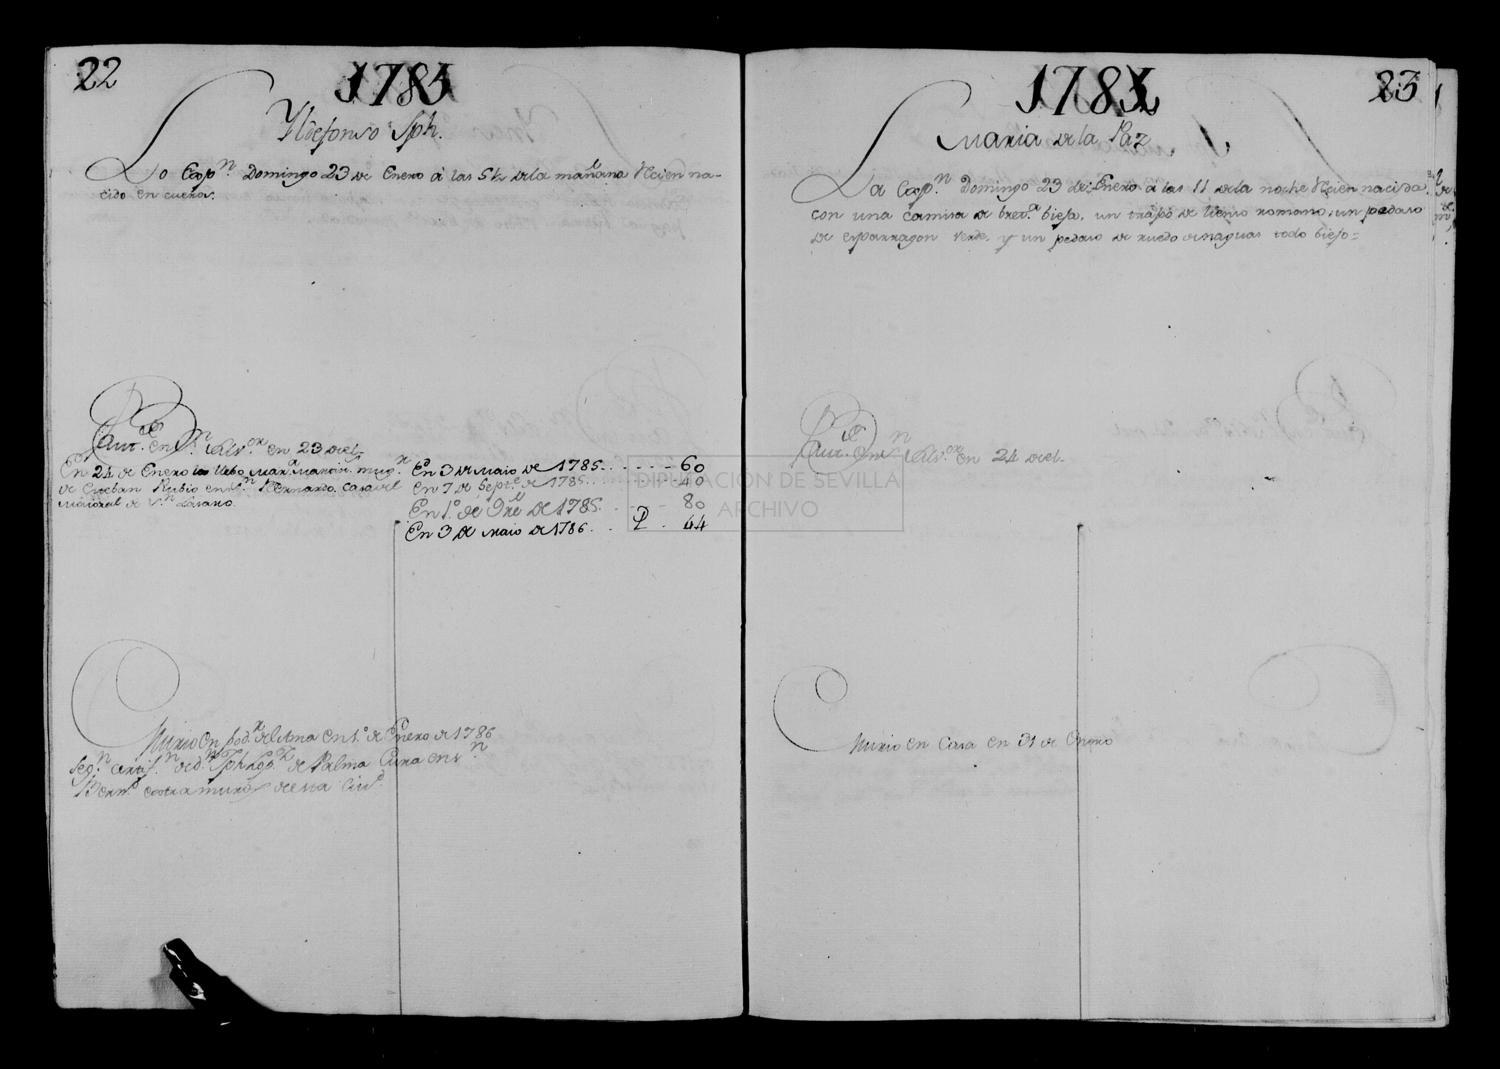 22
1785
Yldefonso Jph.
Lo Cogn. Domingo 23 de Enero à las 5½ de la mañana Recien na-
cido en cueros.
Baut. en Sn. Salvor en 23 del
En 24 de Enero lo llebo Mara mug.r
de Esteban Rubio en Sn. Bernardo, Casa del
Maioral de Sn. Lasaro.
En 3 de Maio de 1785. . . . . . 60
En 7 de Septe. de 1785. . . . . . 40
En 1º de 9re de 1785. . . . 80
En 3 de Maio de 1786. . . P . 44
Murio en podr. del Ama en 1º de Enero de 1786
seg.n certif.n de dn. de Palma Cura en Sn.
Bernd. extramuros de esta Ciud.
23
1785
Maria de la Paz
La Cogn. Domingo 23 de Enero à las 11 de la noche Recien nacida
con una Camisa de bret.a bieja, un trapo de lienso romano, un pedaso
de esparragon verde, y un pedaso de ruedo de naguas todo biejo=
Baut. en Sn. Salvor en 24 del
Murio en Casa en 31 de Enero
DIPUTACIÓN DE SEVILLA
ARCHIVO